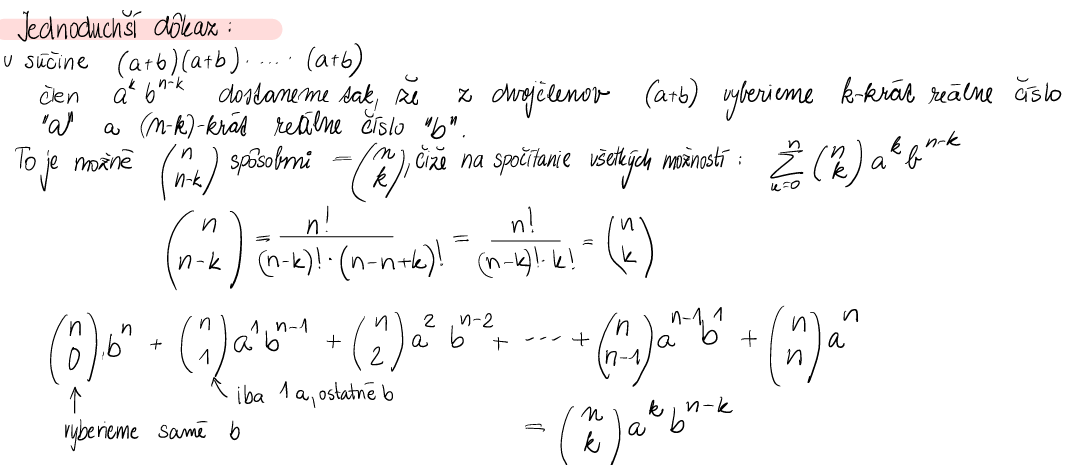 Jednoduchší dôkaz:
v súčine (a+b)(a+b)·....·(a+b)
člen a^k b^{n-k} dostaneme tak, že z dvojčlenov (a+b) vyberieme k-krát reálne číslo
"a" a (n-k)-krát reálne číslo "b".
To je možné \binom{n}{n-k} spôsobmi = \binom{n}{k}, čiže na spočítanie všetkých možností: \sum_{k=0}^{n} \binom{n}{k} a^k b^{n-k}
\binom{n}{n-k} = \frac{n!}{(n-k)!·(n-n+k)!} = \frac{n!}{(n-k)!·k!} = \binom{n}{k}
\binom{n}{0} b^n + \binom{n}{1} a^1 b^{n-1} + \binom{n}{2} a^2 b^{n-2} + ---- + \binom{n}{n-1} a^{n-1} b^1 + \binom{n}{n} a^n
↑ vyberieme samé b
↖ iba 1 a, ostatné b
= \binom{n}{k} a^k b^{n-k}